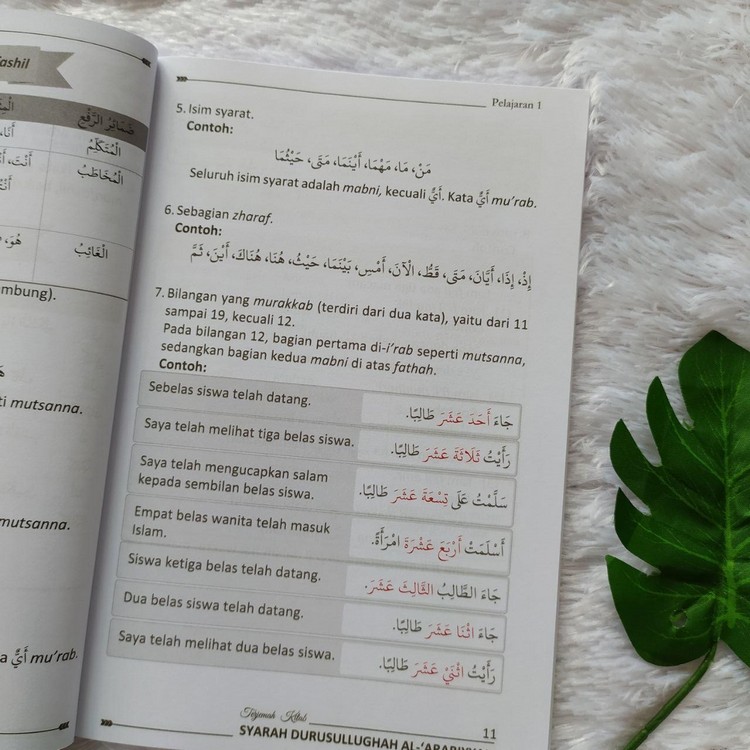 ashil
ضَمَائِرُ الرَّفْعِ
الْمُتَكَلِّمُ
الْمُخَاطَبُ
أَنْتَ،
الْغَائِبُ
هُوَ،
mbung).
ti mutsanna.
mutsanna.
a أَيٌّ mu'rab.
Pelajaran 1
5. Isim syarat.
Contoh:
مَنْ، مَا، مَهْمَا، أَيْنَمَا، مَتَى، حَيْثُمَا
Seluruh isim syarat adalah mabni, kecuali أَيٌّ. Kata أَيٌّ mu'rab.
6. Sebagian zharaf.
Contoh:
إِذْ، إِذَا، أَيَّانَ، مَتَى، قَطُّ، الْآنَ، أَمْسِ، بَيْنَمَا، حَيْثُ، هُنَا، هُنَاكَ، أَيْنَ، ثَمَّ
7. Bilangan yang murakkab (terdiri dari dua kata), yaitu dari 11
sampai 19, kecuali 12.
Pada bilangan 12, bagian pertama di-i'rab seperti mutsanna,
sedangkan bagian kedua mabni di atas fathah.
Contoh:
Sebelas siswa telah datang.
جَاءَ أَحَدَ عَشَرَ طَالِبًا.
Saya telah melihat tiga belas siswa.
رَأَيْتُ ثَلَاثَةَ عَشَرَ طَالِبًا.
Saya telah mengucapkan salam
kepada sembilan belas siswa.
سَلَّمْتُ عَلَى تِسْعَةَ عَشَرَ طَالِبًا.
Empat belas wanita telah masuk
Islam.
أَسْلَمَتْ أَرْبَعَ عَشْرَةَ امْرَأَةً.
Siswa ketiga belas telah datang.
جَاءَ الطَّالِبُ الثَّالِثَ عَشَرَ.
Dua belas siswa telah datang.
جَاءَ اثْنَا عَشَرَ طَالِبًا.
Saya telah melihat dua belas siswa.
رَأَيْتُ اثْنَيْ عَشَرَ طَالِبًا.
Terjemah Kitab
11
SYARAH DURUSULLUGHAH AL-'ARABIYYAH